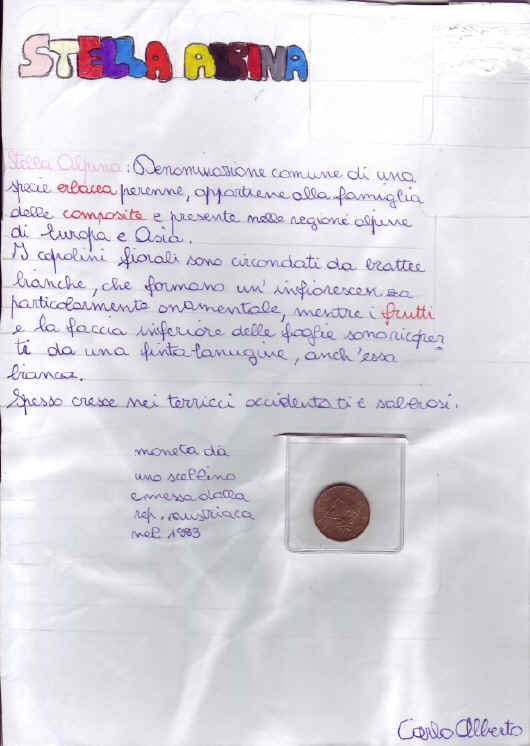 STELLA ALPINA
Stella Alpina: Denominazione comune di una
specie erbacea perenne, appartiene alla famiglia
delle composite e presente nelle regioni alpine
di Europa e Asia.
I capolini fiorali sono circondati da brattee
bianche, che formano un' infiorescenza
particolarmente ornamentale, mentre i frutti
e la faccia inferiore delle foglie sono ricoper
ti da una finta lanugine, anch'essa
bianca.
Spesso cresce nei terricci accidentati e
moneta da
uno scellino
emessa dalla
rep. austriaca
nel 1983
Carlo Alberto